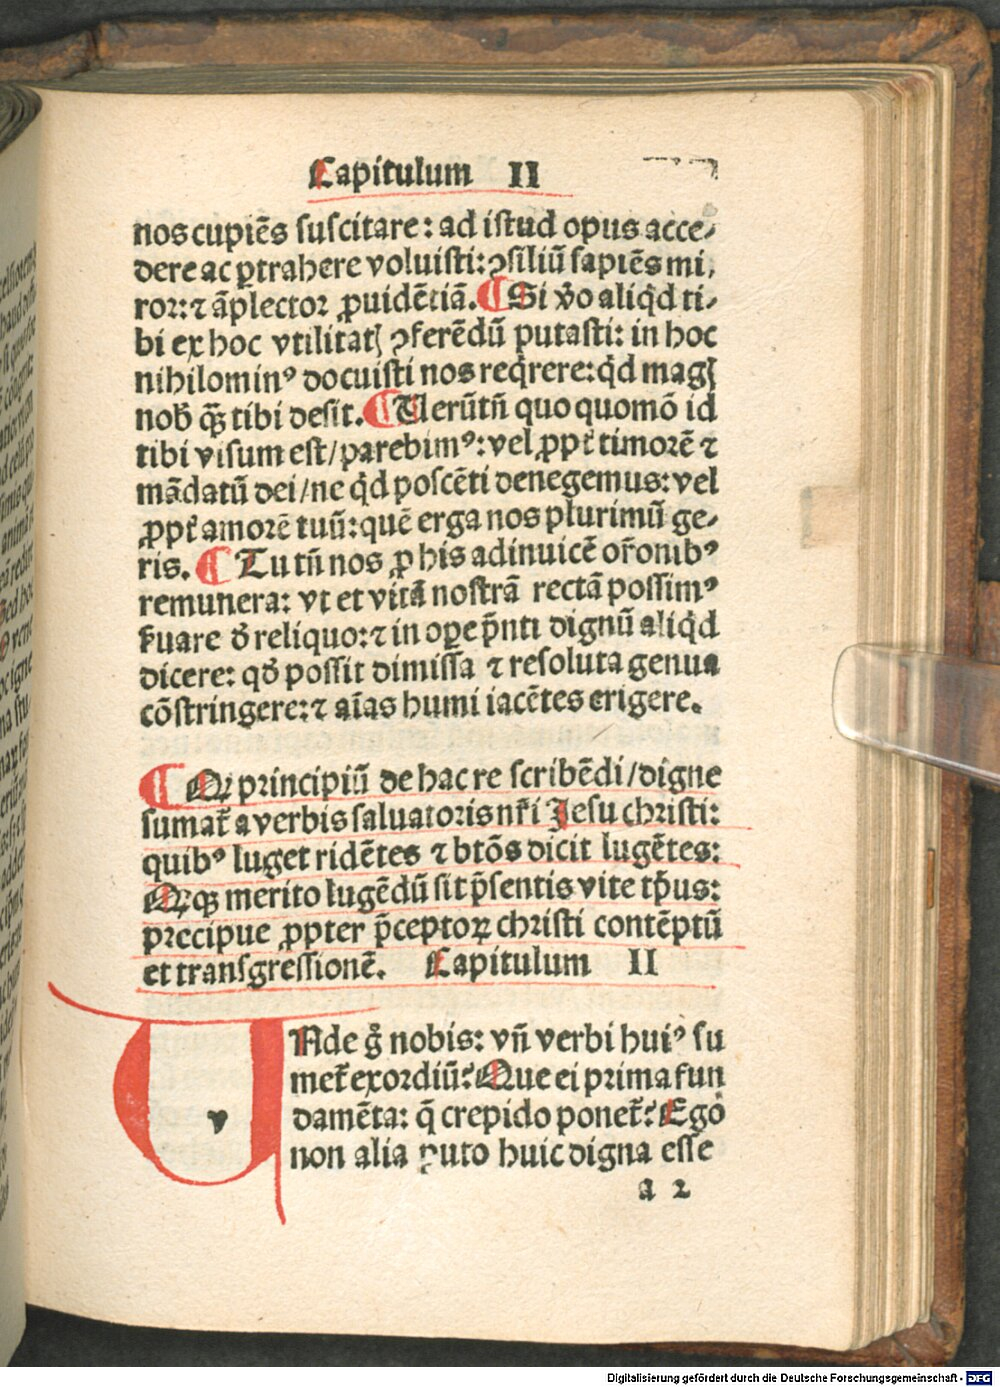 Capitulum II
nos cupiēs suscitare: ad istud opus acce⸗
dere ac ꝑtrahere voluisti: ꝯsiliū sapiēs mi⸗
ror: ⁊ āplector ꝓuidētiā. ¶ Si v̄o aliq̇d ti⸗
bi ex hoc vtilitatꝭ ꝯferēdū putasti: in hoc
nihilominꝰ docuisti nos req̇rere: q̇d magꝭ
nob̄ qꝫ tibi desit. ¶ Uerūtn̄ quoquomō id
tibi visum est/ parebimꝰ: vel ꝓpt̄ timorē ⁊
mādatū dei/ ne q̇d poscēti denegemus: vel
ꝓpt̄ amorē tuū: quē erga nos plurimū ge⸗
ris. ¶ Tu tn̄ nos ꝓ his adinuicē or̄onibꝰ
remunera: vt et vitā nostrā rectā possimꝰ
ẜuare d̄ reliquo: ⁊ in oꝑe p̄nti dignū aliq̇d
dicere: qd̄ possit dimissa ⁊ resoluta genua
cōstringere: ⁊ aīas humi iacētes erigere.
¶ Qꝛ principiū de hac re scribēdi/ digne
sumat̄ a verbis saluatoris nr̄i Jesu christi:
quibꝰ luget ridētes ⁊ btōs dicit lugētes:
Qꝛqꝫ merito lugēdū sit p̄sentis vite tp̄us:
precipue ꝓpter p̄ceptoꝝ christi contēptū
et transgressionē. Capitulum II
v
UNde g̊ nobis: vn̄ verbi huiꝰ su
met̄ exordiū? Que ei prima fun
damēta: q̄ crepido ponet̄? Ego
non alia puto huic digna esse
a 2
Digitalisierung gefördert durch die Deutsche Forschungsgemeinschaft - DFG